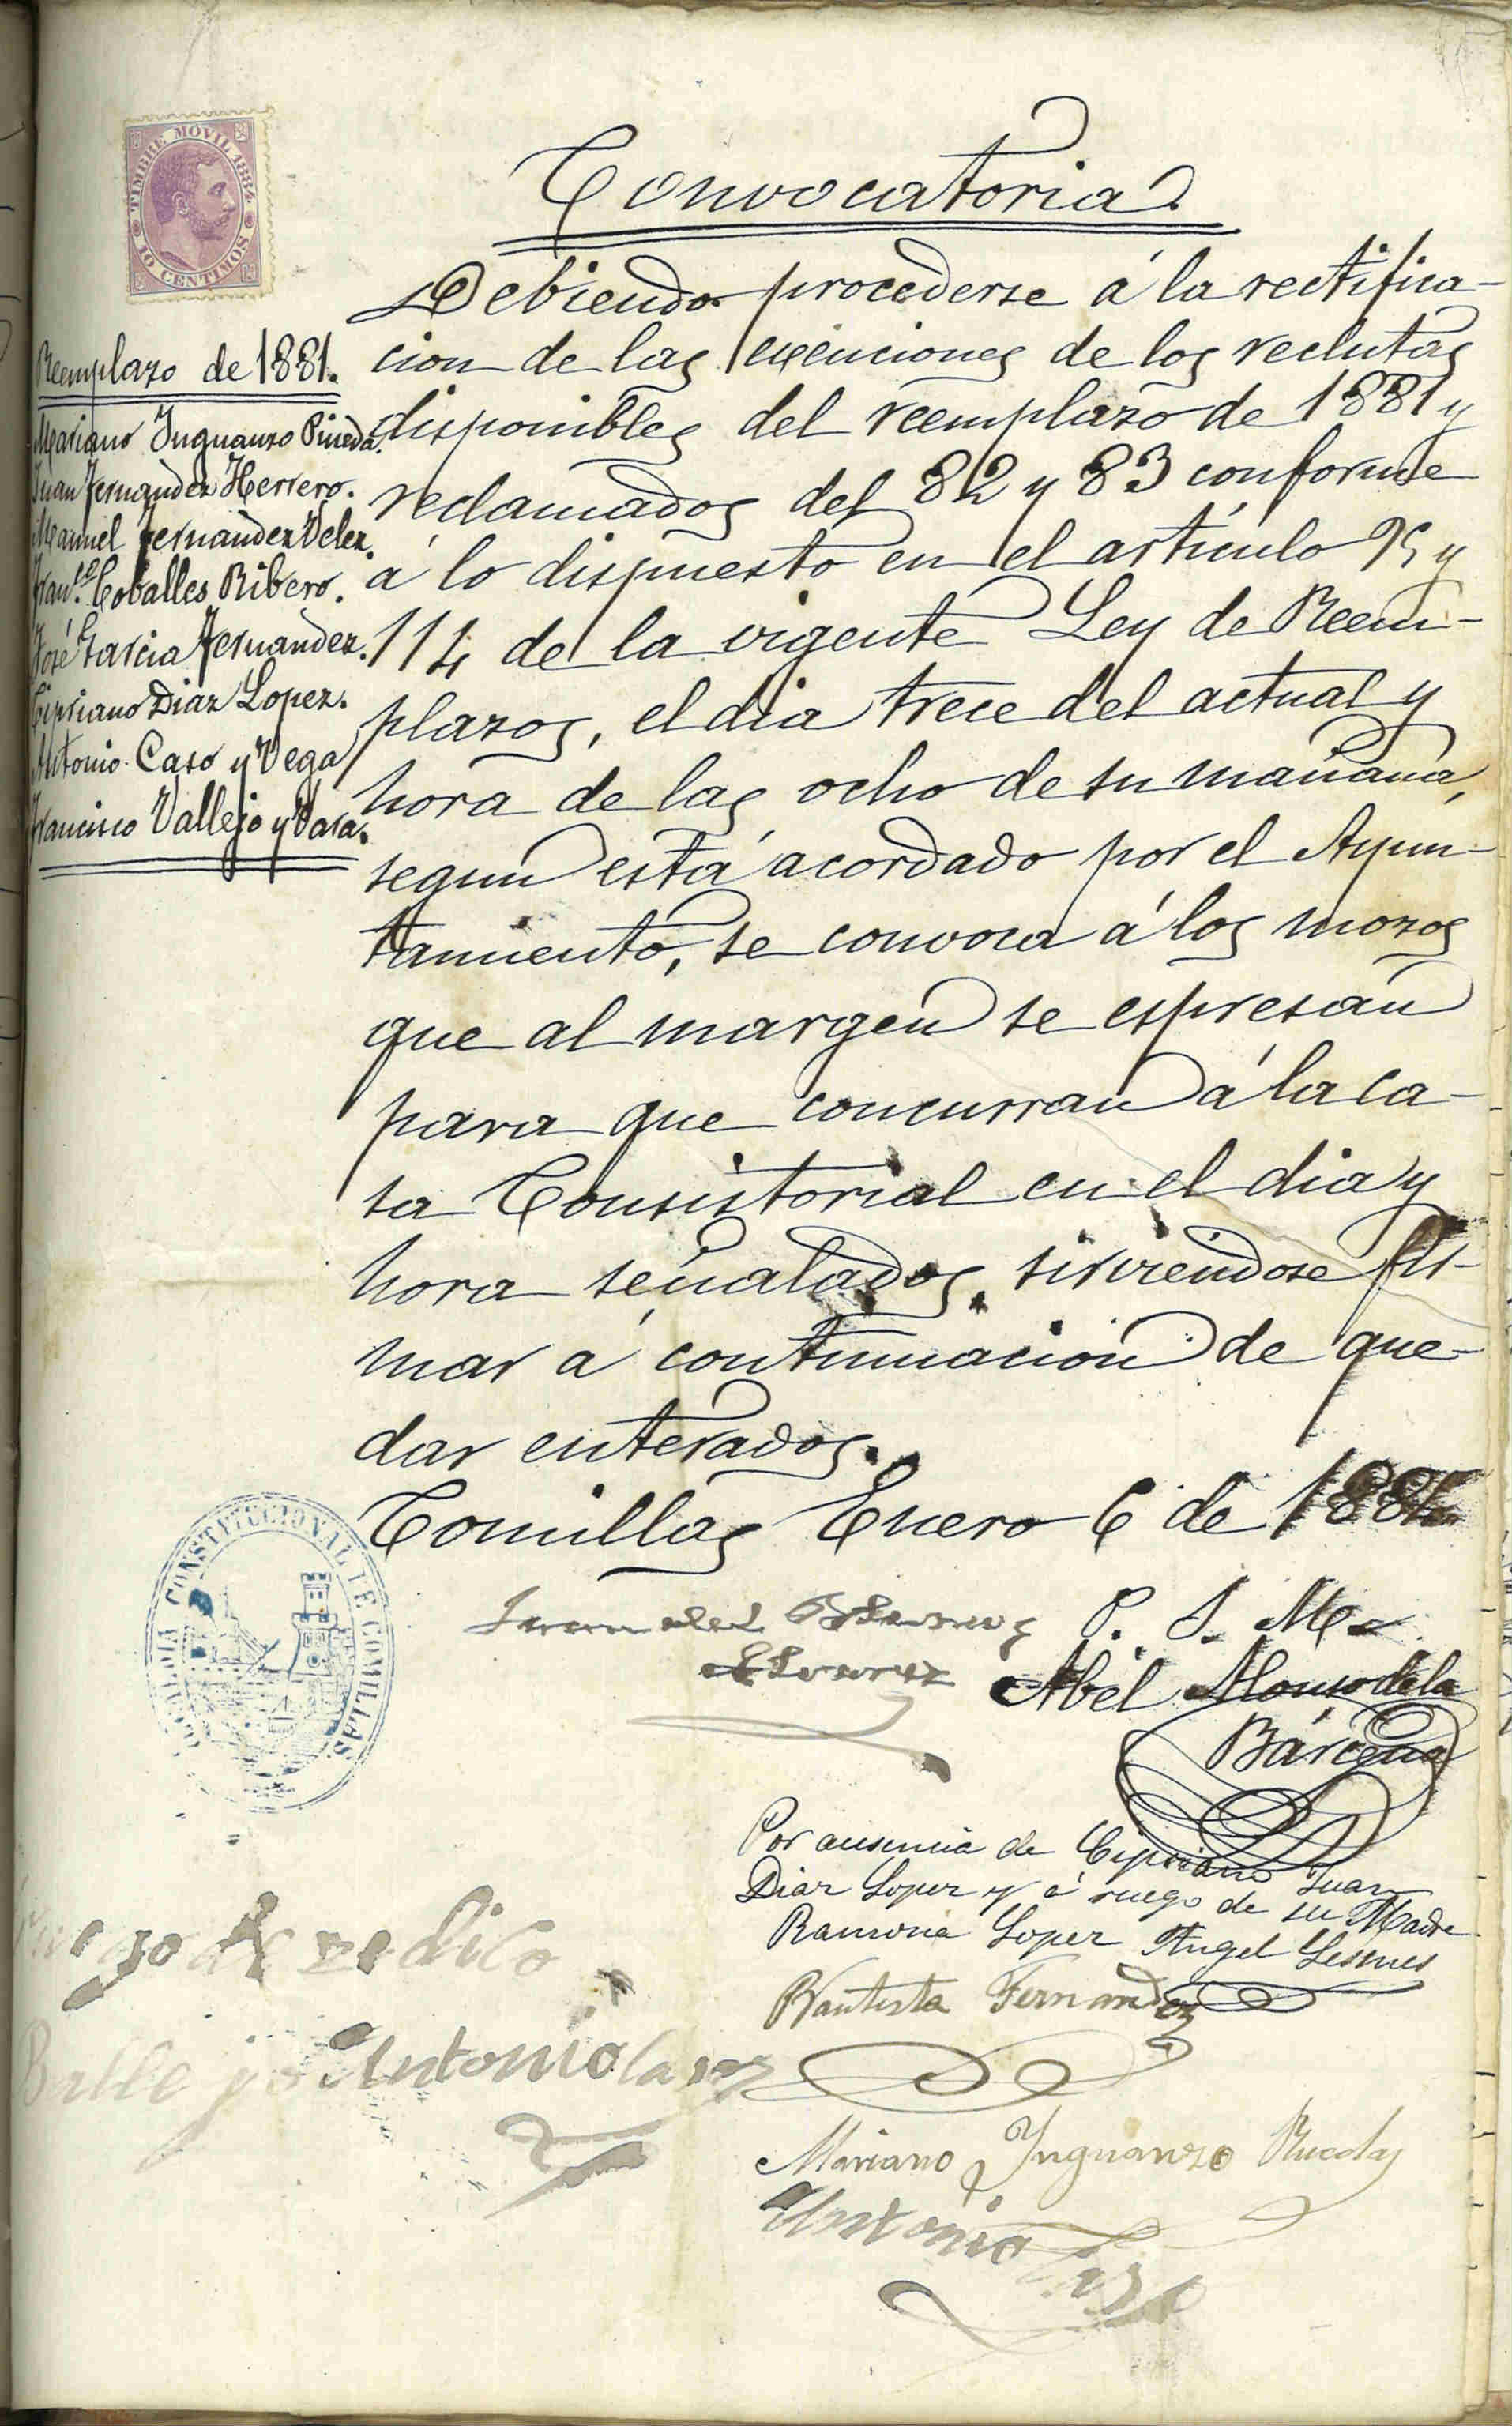 TIMBRE MOVIL 1884
10 CENTIMOS
Convocatoria.
Debiendo procederse á la rectifica-
cion de las exenciones de los reclutas
disponibles del reemplazo de 1881 y
reclamados del 82 y 83 conforme
á lo dispuesto en el artículo 95 y
114 de la vigente Ley de Reem-
plazos, el dia trece del actual y
hora de las ocho de su mañana,
segun está acordado por el Ayun-
tamiento, se convoca á los mozos
que al margen se espresan
para que concurran á la ca-
sa Consistorial en el dia y
hora señalados, sirviendose fir-
mar á continuacion de que-
dar enterados.
Comillas Enero 6 de 1884
Reemplazo de 1881.
Mariano Inguanzo Pineda.
Juan Fernandez Herrero.
Manuel Fernandez Velez.
Fran.co Coballes Ribero.
José Garcia Fernandez.
Cipriano Diaz Lopez.
Antonio Caso y Vega
Francisco Vallejo y Vara.
ALCALDIA CONSTITUCIONAL DE COMILLAS
P. S. M.
Abel Alonso de la
Bárcena
Por ausencia de Cipriano Juan
Diaz Lopez y á ruego de su Madre
Ramona Lopez Angel Lesmes
Bautista Fernandez
Antonio
Mariano Inguanzo
Antonio Caso